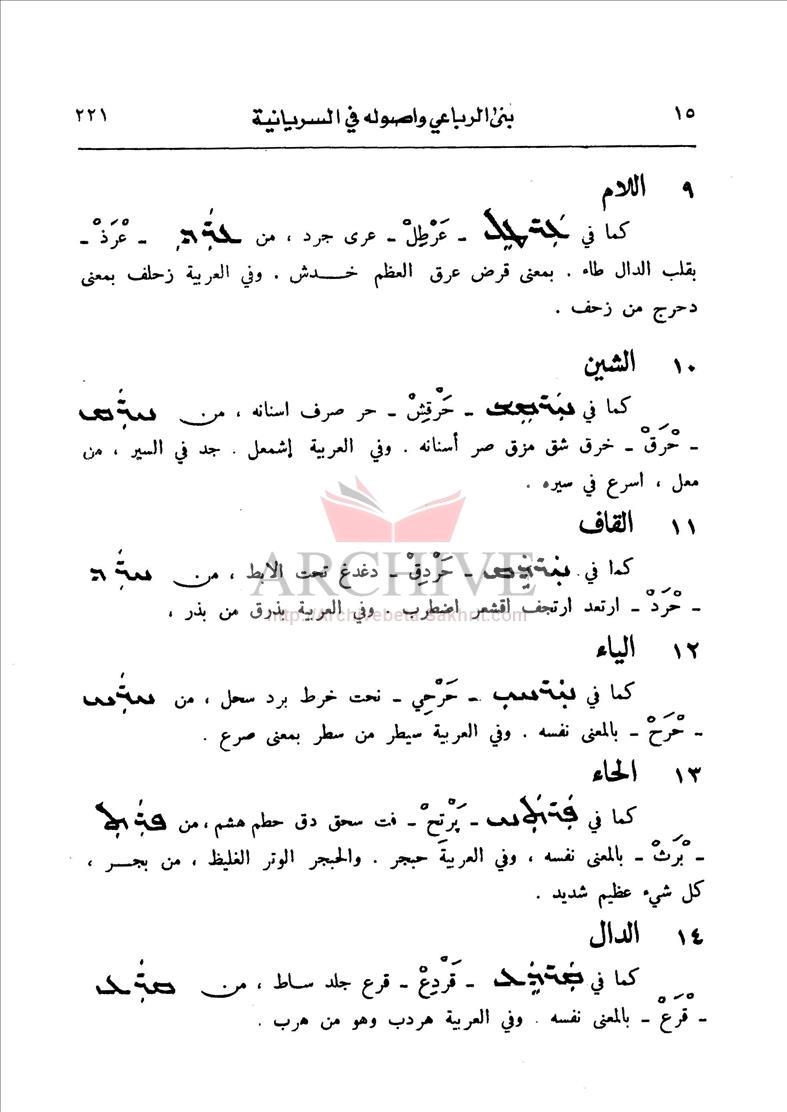 ١٥ بنى الرباعي واصوله في السريانية ٢٢١
٩ اللام
كما في ܥܰܪܛܶܠ ـ عَرْطِلْ ـ عرى جرد ، من ܥܪܰܕ ـ عْرَذْ ـ
بقلب الدال طاء . بمعنى قرض عرق العظم خـــدش . وفي العربية زحلف بمعنى
دحرج من زحف .
١٠ الشين
كما في ܚܰܪܩܶܫ ـ حَرْقِشْ ـ حر صرف اسنانه ، من ܚܪܰܩ
ـ حْرَقْ ـ خرق شق مزق صر أسنانه . وفي العربية إشمعل . جد في السير ، من
معل ، اسرع في سيره .
١١ القاف
كما في ܚܰܪܕܶܩ ـ حَرْدِقْ ـ دغدغ تحت الابط ، من ܚܪܰܕ
ـ حْرَدْ ـ ارتعد ارتجف اقشعر اضطرب . وفي العربية بذرق من بذر ،
ARCHIVE
http://Archivebeta.Sakhrit.com
١٢ الياء
كما في ܚܰܪܚܝ ـ حَرْحِي ـ نحت خرط برد سحل ، من ܚܪܰܚ
ـ حْرَحْ ـ بالمعنى نفسه . وفي العربية سيطر من سطر بمعنى صرع .
١٣ الحاء
كما في ܦܰܪܬܰܚ ـ پَرْتَحْ ـ فت سحق دق حطم هشم ، من ܦܪܰܬ
ـ بْرَثْ ـ بالمعنى نفسه ، وفي العربية حبجر . والحبجر الوتر الغليظ ، من بجـــر ،
كل شيء عظيم شديد .
١٤ الدال
كما في ܩܰܪܕܶܥ ـ قَرْدِعْ ـ قرع جلد ساط ، من ܩܪܰܥ
ـ قْرَعْ ـ بالمعنى نفسه . وفي العربية هردب وهو من هرب .